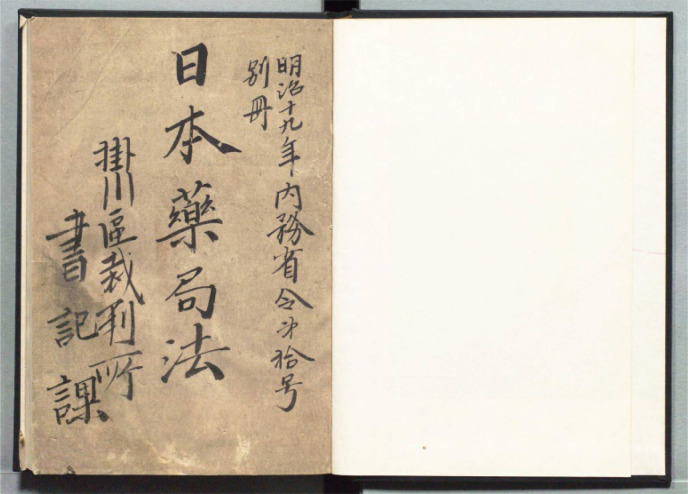 明治十九年内務省令第拾号
別冊
日本藥局法
掛川區裁判所
書記課